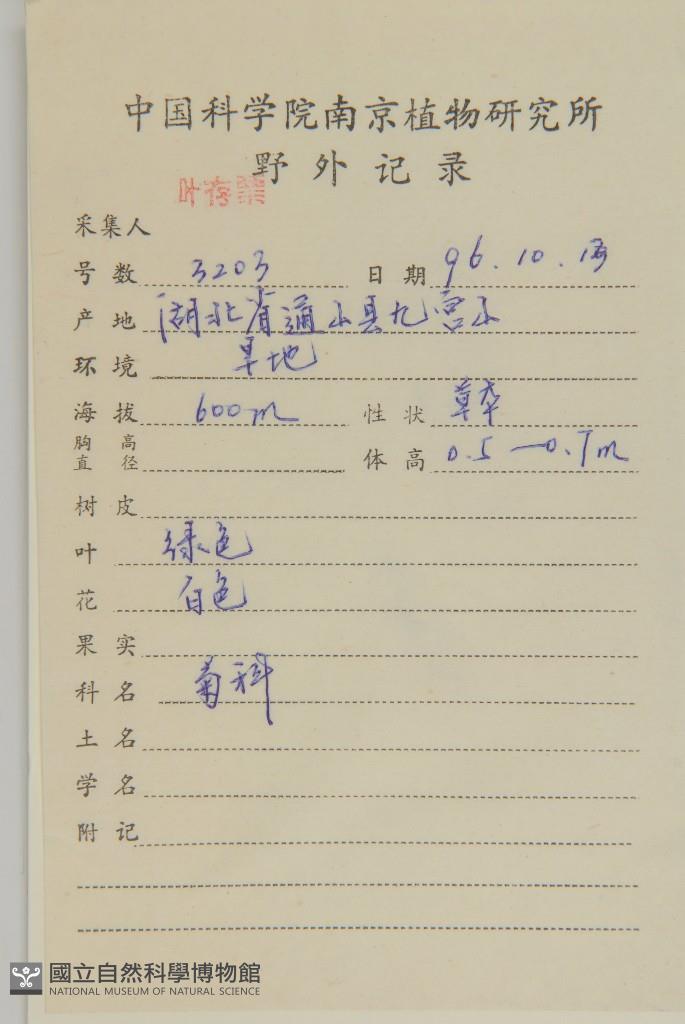 中国科学院南京植物研究所
野外记录
叶存
采集人
号数 3203 日期 96.10.
产地 湖北省通山县九宫山
环境 旱地
海拔 600m 性状 草本
胸高直径 体高 0.5—0.7m
树皮
叶 绿色
花 白色
果实
科名 菊科
土名
学名
附记
國立自然科學博物館
NATIONAL MUSEUM OF NATURAL SCIENCE